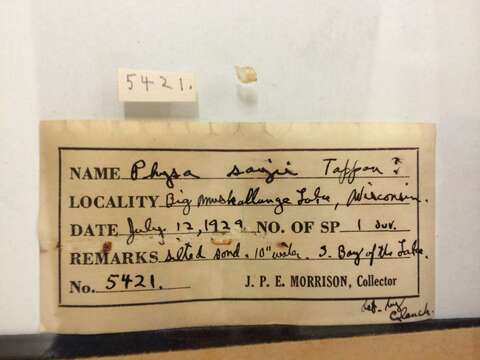 5421.
NAME Physa sayii Tappan ?
LOCALITY Big Muskallunge Lake, Wisconsin.
DATE July 12, 1929 NO. OF SP 1 Juv.
REMARKS silted sand. 10" water. S. Bay of the Lake.
No. 5421. J. P. E. MORRISON, Collector
det. by
Clench.